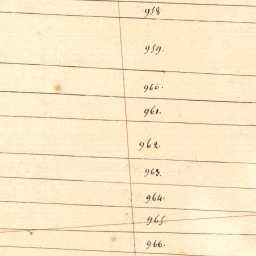 958
959.
960.
961.
962.
963.
964.
965.
966.